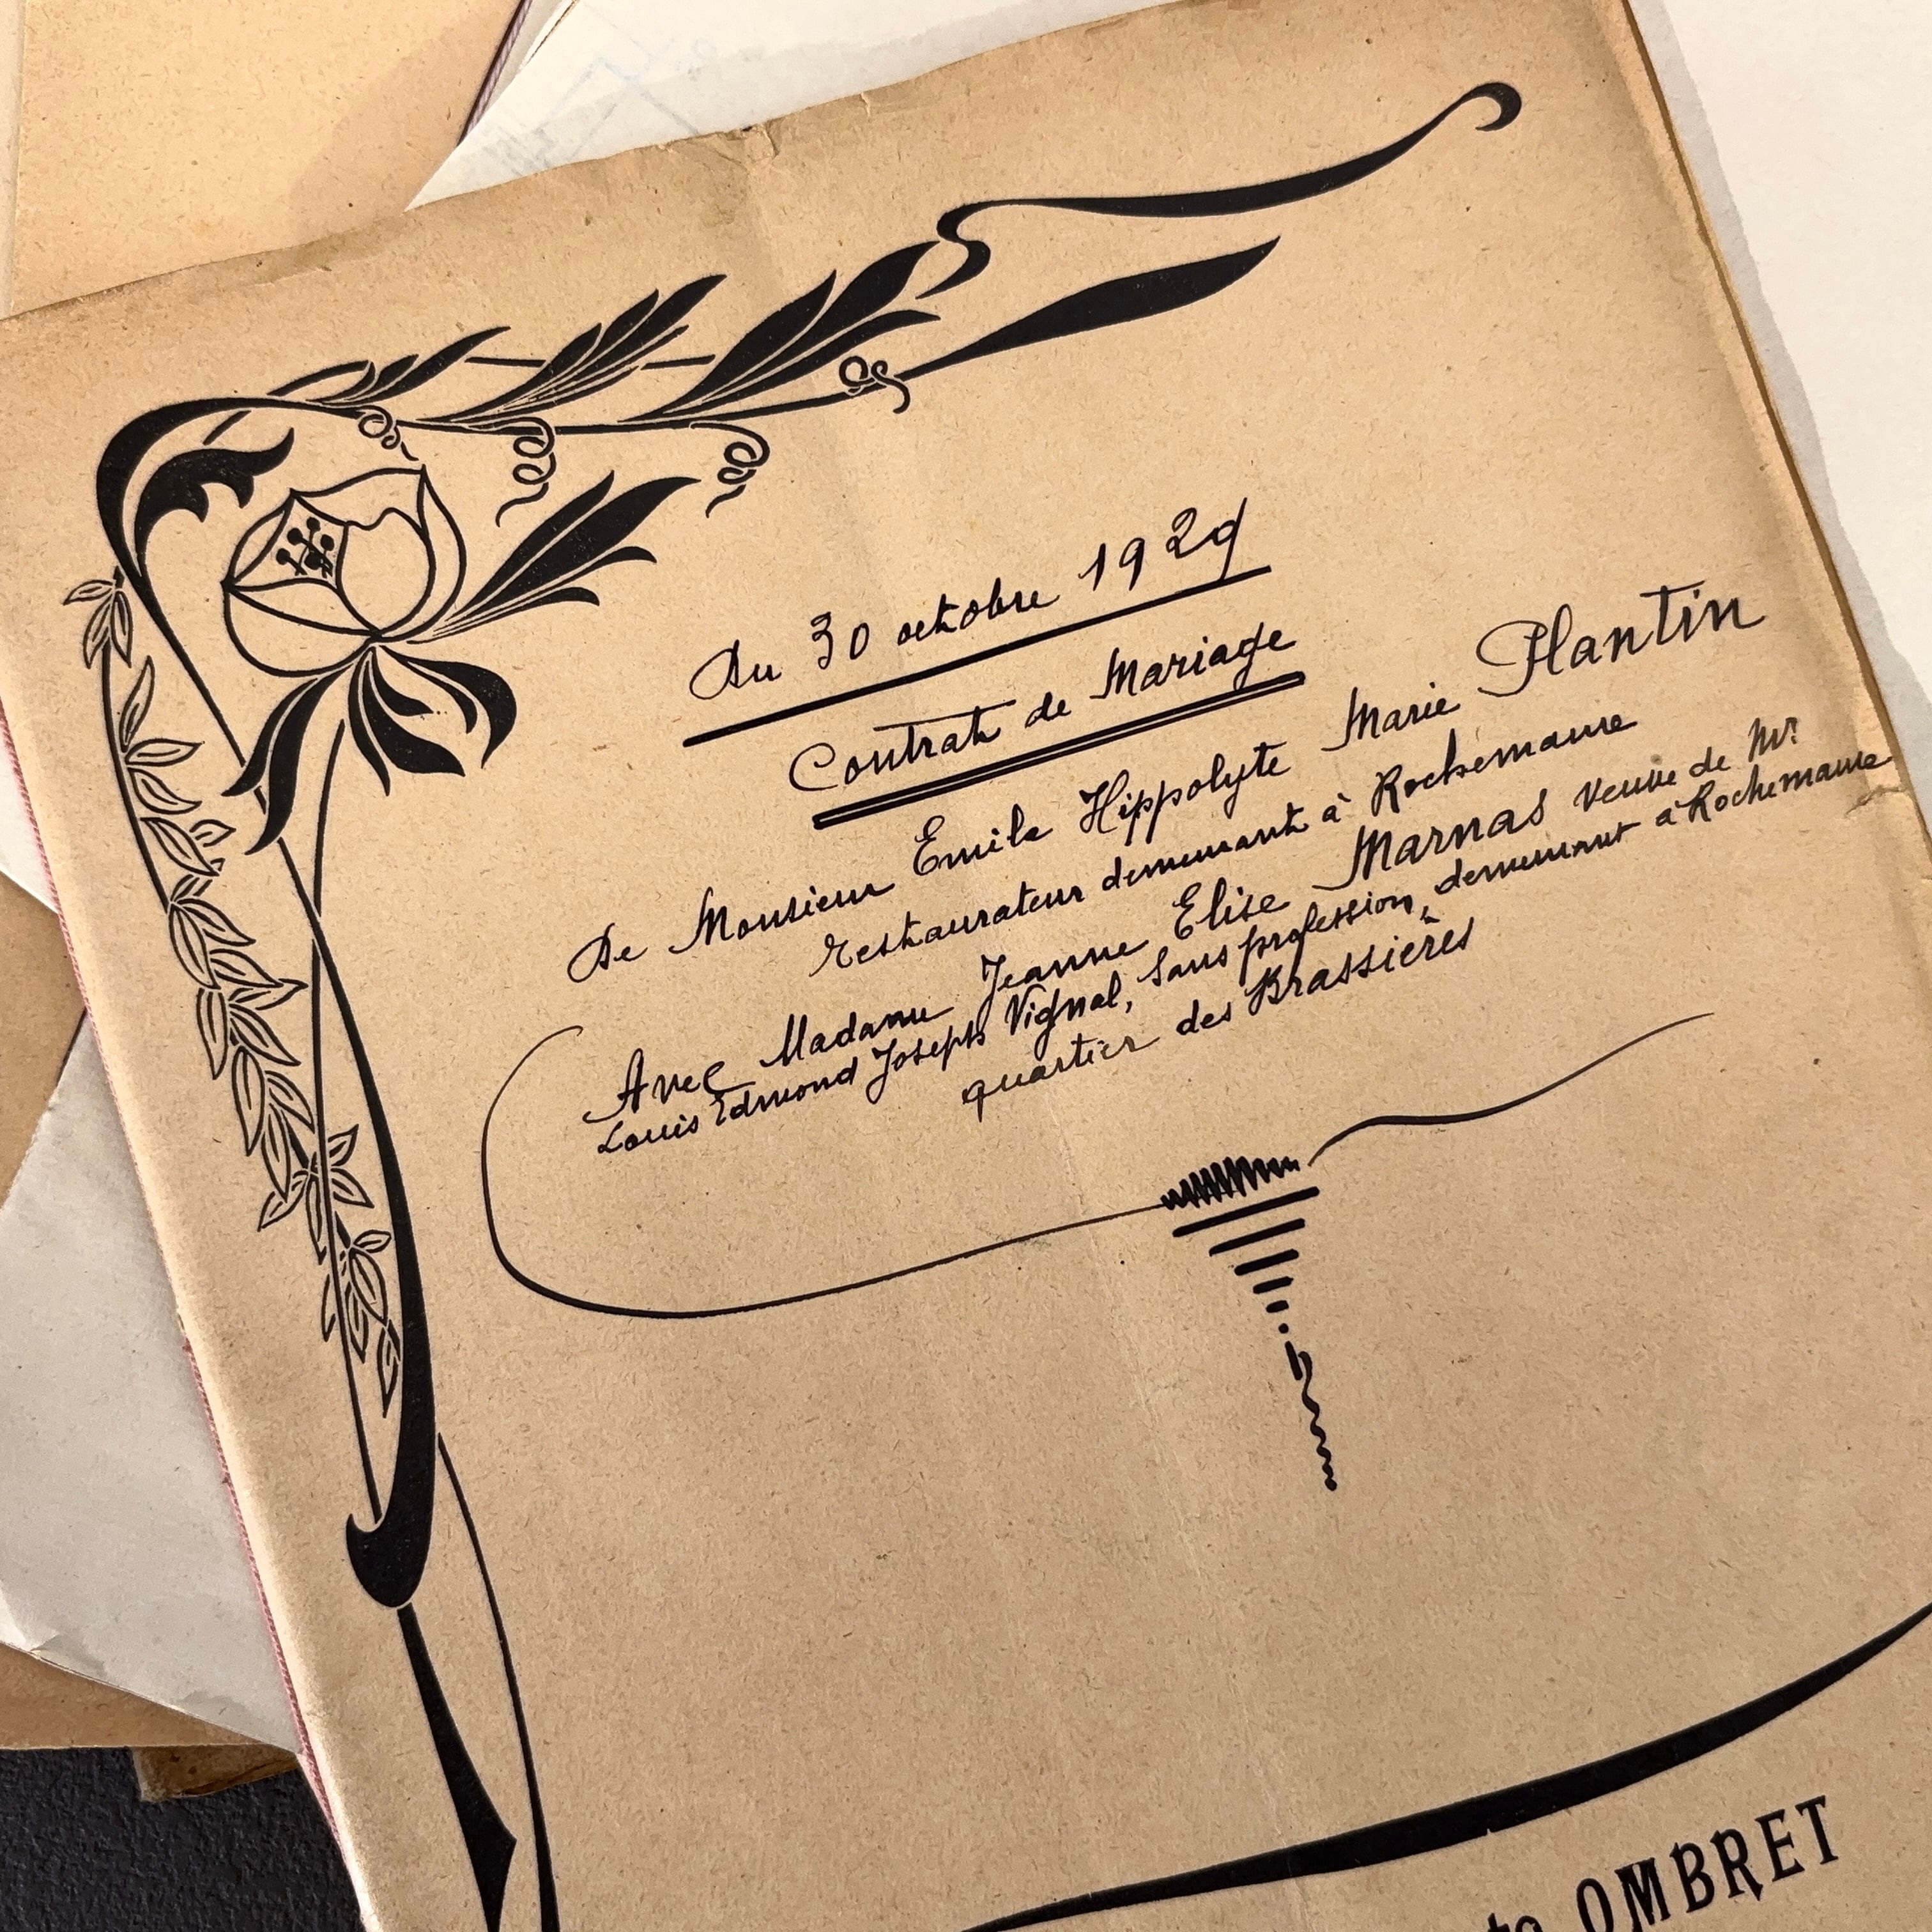 Du 30 octobre 1929
Contrat de Mariage
De Monsieur Emile Hippolyte Marie Plantin
restaurateur demeurant à Rochemaure
Avec Madame Jeanne Elise Marnas veuve de Mr
Louis Edmond Joseph Vignal, sans profession, demeurant à Rochemaure
quartier des Brassières
OMBRET